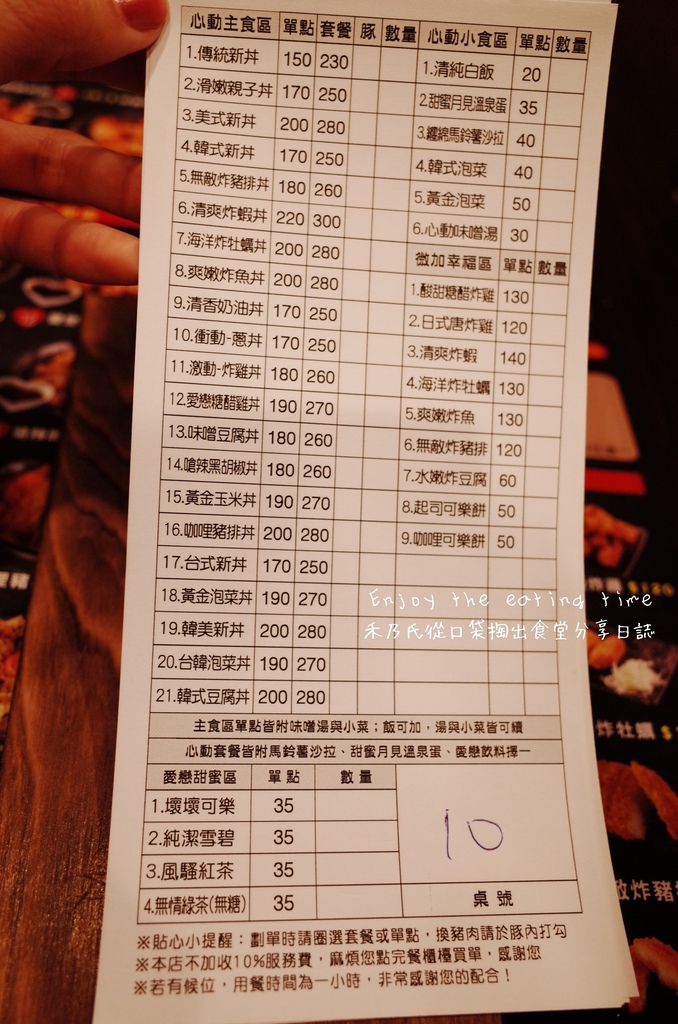 心動主食區 單點 套餐 豚 數量
1.傳統新丼 150 230
2.滑嫩親子丼 170 250
3.美式新丼 200 280
4.韓式新丼 170 250
5.無敵炸豬排丼 180 260
6.清爽炸蝦丼 220 300
7.海洋炸牡蠣丼 200 280
8.爽嫩炸魚丼 200 280
9.清香奶油丼 170 250
10.衝動-蔥丼 170 250
11.激動-炸雞丼 180 260
12.愛戀糖醋雞丼 190 270
13.味噌豆腐丼 180 260
14.嗆辣黑胡椒丼 180 260
15.黃金玉米丼 190 270
16.咖哩豬排丼 200 280
17.台式新丼 170 250
18.黃金泡菜丼 190 270
19.韓美新丼 200 280
20.台韓泡菜丼 190 270
21.韓式豆腐丼 200 280
心動小食區 單點 數量
1.清純白飯 20
2.甜蜜月見溫泉蛋 35
3.纏綿馬鈴薯沙拉 40
4.韓式泡菜 40
5.黃金泡菜 50
6.心動味噌湯 30
微加幸福區 單點 數量
1.酸甜糖醋炸雞 130
2.日式唐炸雞 120
3.清爽炸蝦 140
4.海洋炸牡蠣 130
5.爽嫩炸魚 130
6.無敵炸豬排 120
7.水嫩炸豆腐 60
8.起司可樂餅 50
9.咖哩可樂餅 50
Enjoy the eating time
禾乃氏從口袋掏出食堂分享日誌
主食區單點皆附味噌湯與小菜；飯可加，湯與小菜皆可續
心動套餐皆附馬鈴薯沙拉、甜蜜月見溫泉蛋、愛戀飲料擇一
愛戀甜蜜區 單點 數量
1.壞壞可樂 35
2.純潔雪碧 35
3.風騷紅茶 35
4.無情綠茶(無糖) 35
10
桌號
※貼心小提醒：劃單時請圈選套餐或單點，換豬肉請於豚內打勾
※本店不加收10%服務費，麻煩您點完餐櫃檯買單，感謝您
※若有候位，用餐時間為一小時，非常感謝您的配合！
炸牡蠣 $
敵炸豬